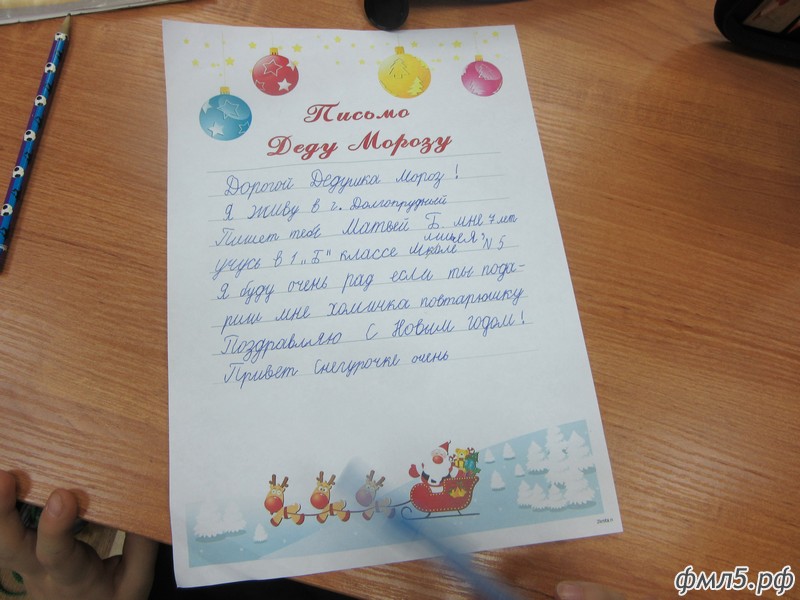 Письмо
Деду Морозу
Дорогой Дедушка Мороз!
Я живу в г. Долгопрудный
Пишет тебе Матвей Б. мне 7 лет
лицея,
учусь в 1 „Б" классе школе N 5
Я буду очень рад если ты пода-
риш мне хомичка повтарюшку
Поздравляю С Новым годом!
Привет Снегурочке очень
фмл5.рф